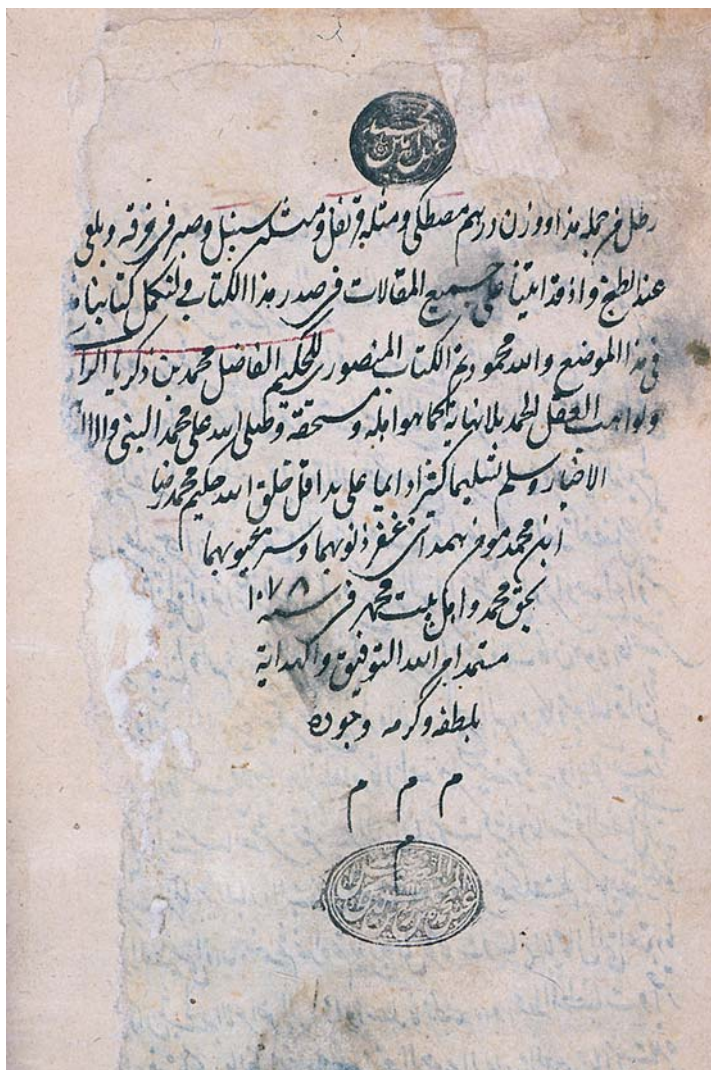 رطل من جملة هذا ووزن درهم مصطكى ومثله قرنفل ومثله سنبل وصبر فى خرقة ويلقى
عند الطبخ واذ قد اتينا على جميع المقالات فى صدر هذا الكتاب فلنكمل كتابنا
فى هذا الموضع والله محمود تم الكتاب المنصورى للحكيم الفاضل محمد بن زكريا
ولواهب العقل الحمد بلا نهاية كما هو اهله ومستحقه وصلى الله على محمد النبى
الاخيار وسلم تسليما كثيرا دايما على يد اقل خلق الله حكيم محمد رضا
ابن محمد همدانى غفر ذنوبهما وستر عيوبهما
بحق محمد واهل بيت محمد فى سنه ١٠٧٨
مستمدا من الله التوفيق والهداية
بلطفه وكرمه وجوده
م م م
م